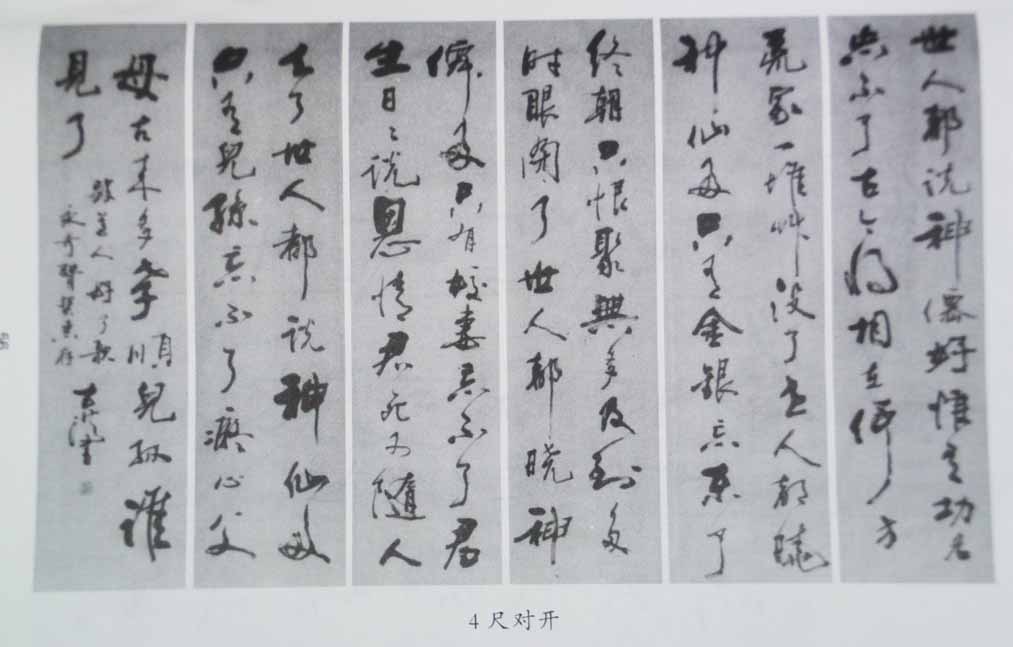 世人都说神僊好惟有功名
忘不了古今将相在何方
荒冢一堆草没了世人都晓
神仙好只有金银忘不了
终朝只恨聚無多及到多
时眼闭了世人都晓神
僊好只有姣妻忘不了君
生日々说恩情君死又随人
去了世人都说神仙好
只有兒孫忘不了痴心父
母古来多孝順兒孫谁
見了
跛道人好了歌
4尺对开